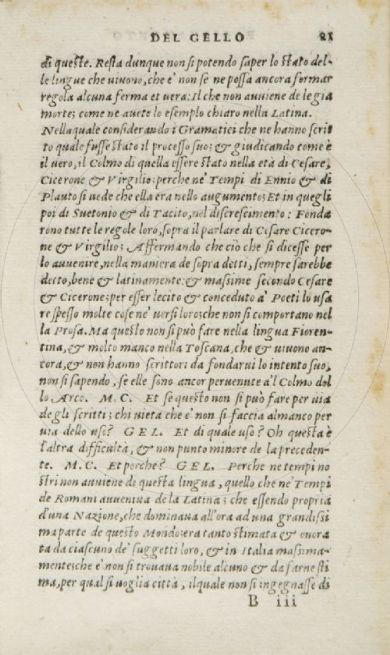 DEL GELLO 21
di queste. Resta dunque non si potendo saper lo stato del-
le lingue che viuono, che e' non se ne possa ancora formar
regola alcuna ferma et uera: Il che non auuiene de le gia
morte; come ne auete lo esemplo chiaro nella Latina.
Nella quale considerando i Gramatici che ne hanno scrit
to quale fusse stato il processo suo; & giudicando come è
il uero, il Colmo di quella essere stato nella età di Cesare,
Cicerone & Virgilio: perche ne' Tempi di Ennio & di
Plauto si vede che ella era nello augumento; Et in quegli
poi di Suetonio & di Tacito, nel discrescimento: Fonda
rono tutte le regole loro, sopra il parlare di Cesare Cicero-
ne & Virgilio; Affermando che ciò che si dicesse per
lo auuenire, nella maniera de sopra detti, sempre sarebbe
detto, bene & latinamente: & massime secondo Cesare
& Cicerone: per esser lecito & conceduto a' Poeti lo usa
re spesso molte cose ne' uersi loro: che non si comportano nel
la Prosa. Ma questo non si può fare nella lingua Fioren-
tina, & molto manco nella Toscana, che & uiuono an-
cora, & non hanno scrittori da fondarui lo intento suo,
non si sapendo, se elle sono ancor peruenute a'l Colmo del
lo Arco. M.C. Et se questo non si può fare per uia
de gli scritti; chi uieta che e' non si faccia almanco per
uia dello uso? GEL. Et di quale uso? Oh questa è
l'altra difficultà, & non punto minore de la preceden-
te. M.C. Et perche? GEL. Perche ne tempi no
stri non auuiene di questa lingua, quello che ne' Tempi
de Romani auueniua de la Latina; che essendo propria
d'una Nazione, che dominaua all'ora ad una grandissi
ma parte de questo Mondo: era tanto stimata & onora
ta da ciascuno de' suggetti loro, & in Italia massima-
mente; che e' non si trouaua nobile alcuno & da farne sti
ma, per qual si uoglia città, il quale non si ingegnasse di
B iii